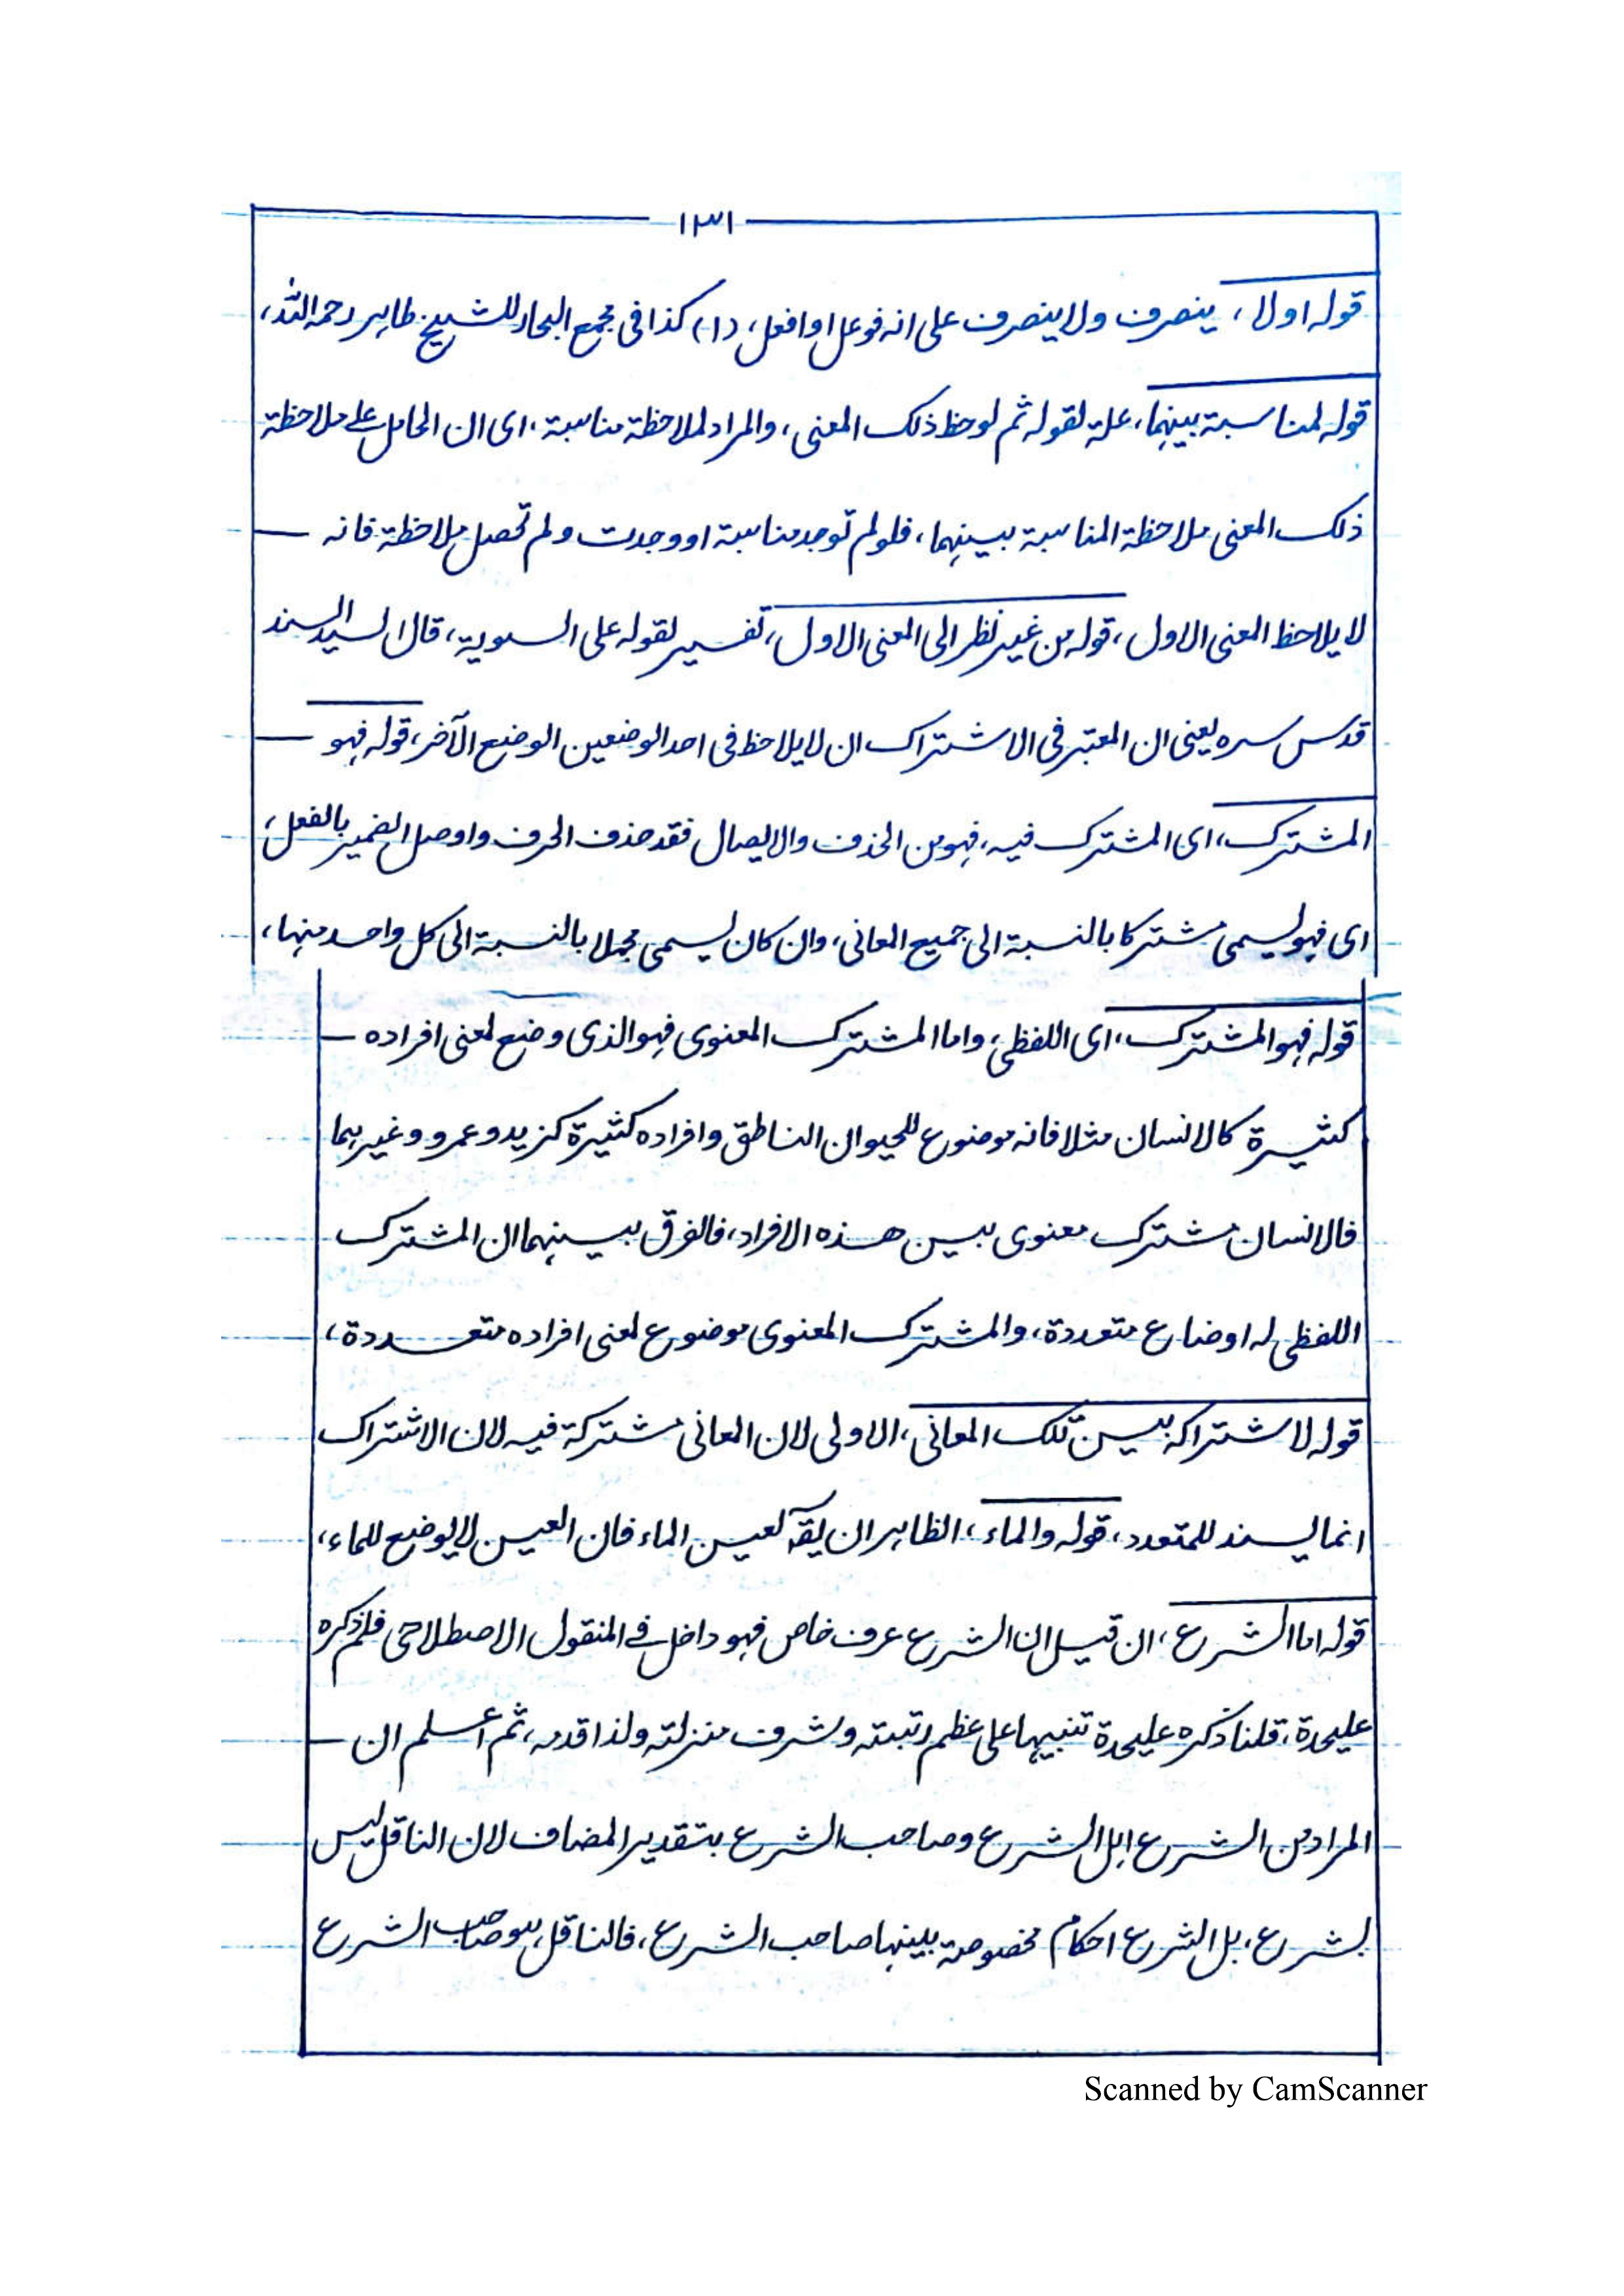 ١٣١
قوله اولا، ينصرف ولا ينصرف على انه فوعل او افعل، (١) كذا فى مجمع البحار للشيخ طاهر رحمه الله،
قوله لمناسبة بينهما، علة لقوله ثم لوحظ ذلك المعنى، والمراد لملاحظة مناسبة، اى ان الحامل على ملاحظة
ذلك المعنى ملاحظة المناسبة بينهما، فلو لم توجد مناسبة او وجدت ولم تحصل ملاحظة فانه
لا يلاحظ المعنى الاول، قوله من غير نظر الى المعنى الاول، تفسير لقوله على السوية، قال السيد السند
قدس سره يعنى ان المعتبر فى الاشتراك ان لا يلاحظ فى احد الوضعين الوضع الآخر، قوله فهو
المشترك، اى المشترك فيه، فهو من الحذف والايصال فقد حذف الحرف واوصل الضمير بالفعل،
اى فهو يسمى مشتركا بالنسبة الى جميع المعانى، وان كان يسمى مجملا بالنسبة الى كل واحد منها،
قوله فهو المشترك، اى اللفظى، واما المشترك المعنوى فهو الذى وضع لمعنى افراده
كثيرة كالانسان مثلا فانه موضوع للحيوان الناطق وافراده كثيرة كزيد وعمرو وغيرهما
فالانسان مشترك معنوى بين هذه الافراد، فالفرق بينهما ان المشترك
اللفظى له اوضاع متعددة، والمشترك المعنوى موضوع لمعنى افراده متعددة،
قوله لاشتراكه بين تلك المعانى، الاولى لان المعانى مشتركة فيه لان الاشتراك
انما يسند للمتعدد، قوله والماء، الظاهر ان يقآ لعين الماء فان العين لا يوضع للماء،
قوله اما الشرع، ان قيل ان الشرع عرف خاص فهو داخل فى المنقول الاصطلاحى فلم ذكره
عليحدة، قلنا ذكره عليحدة تنبيها على عظم رتبته وشرف منزلته ولذا قدمه، ثم اعلم ان
المراد من الشرع اهل الشرع وصاحب الشرع بتقدير المضاف لان الناقل ليس
بشرع، بل الشرع احكام مخصوصة بينها صاحب الشرع، فالناقل هو صاحب الشرع
Scanned by CamScanner